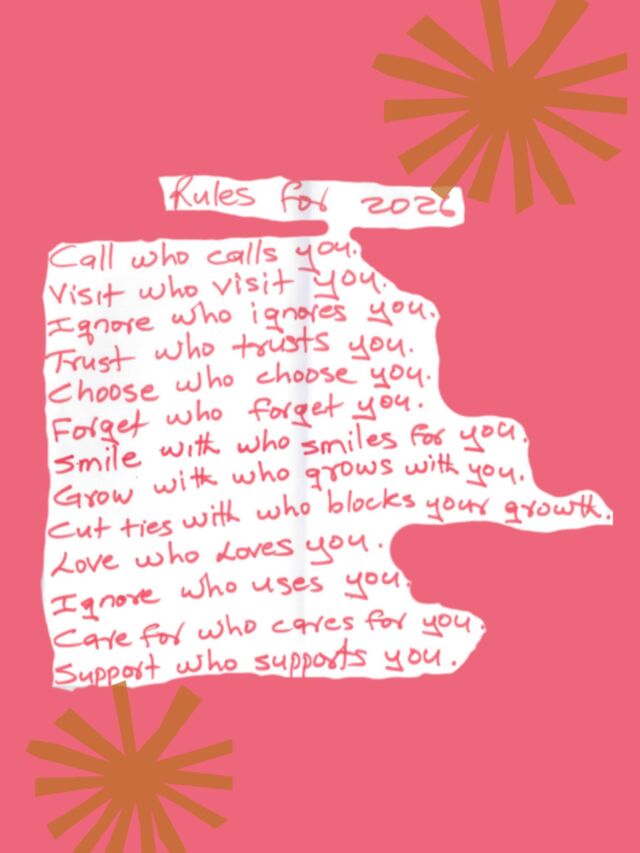 Rules for 2026
Call who calls you.
Visit who visit you.
Ignore who ignores you.
Trust who trusts you.
Choose who choose you.
Forget who forget you.
Smile with who smiles for you.
Grow with who grows with you.
Cut ties with who blocks your growth.
Love who Loves you.
Ignore who uses you.
Care for who cares for you.
Support who supports you.